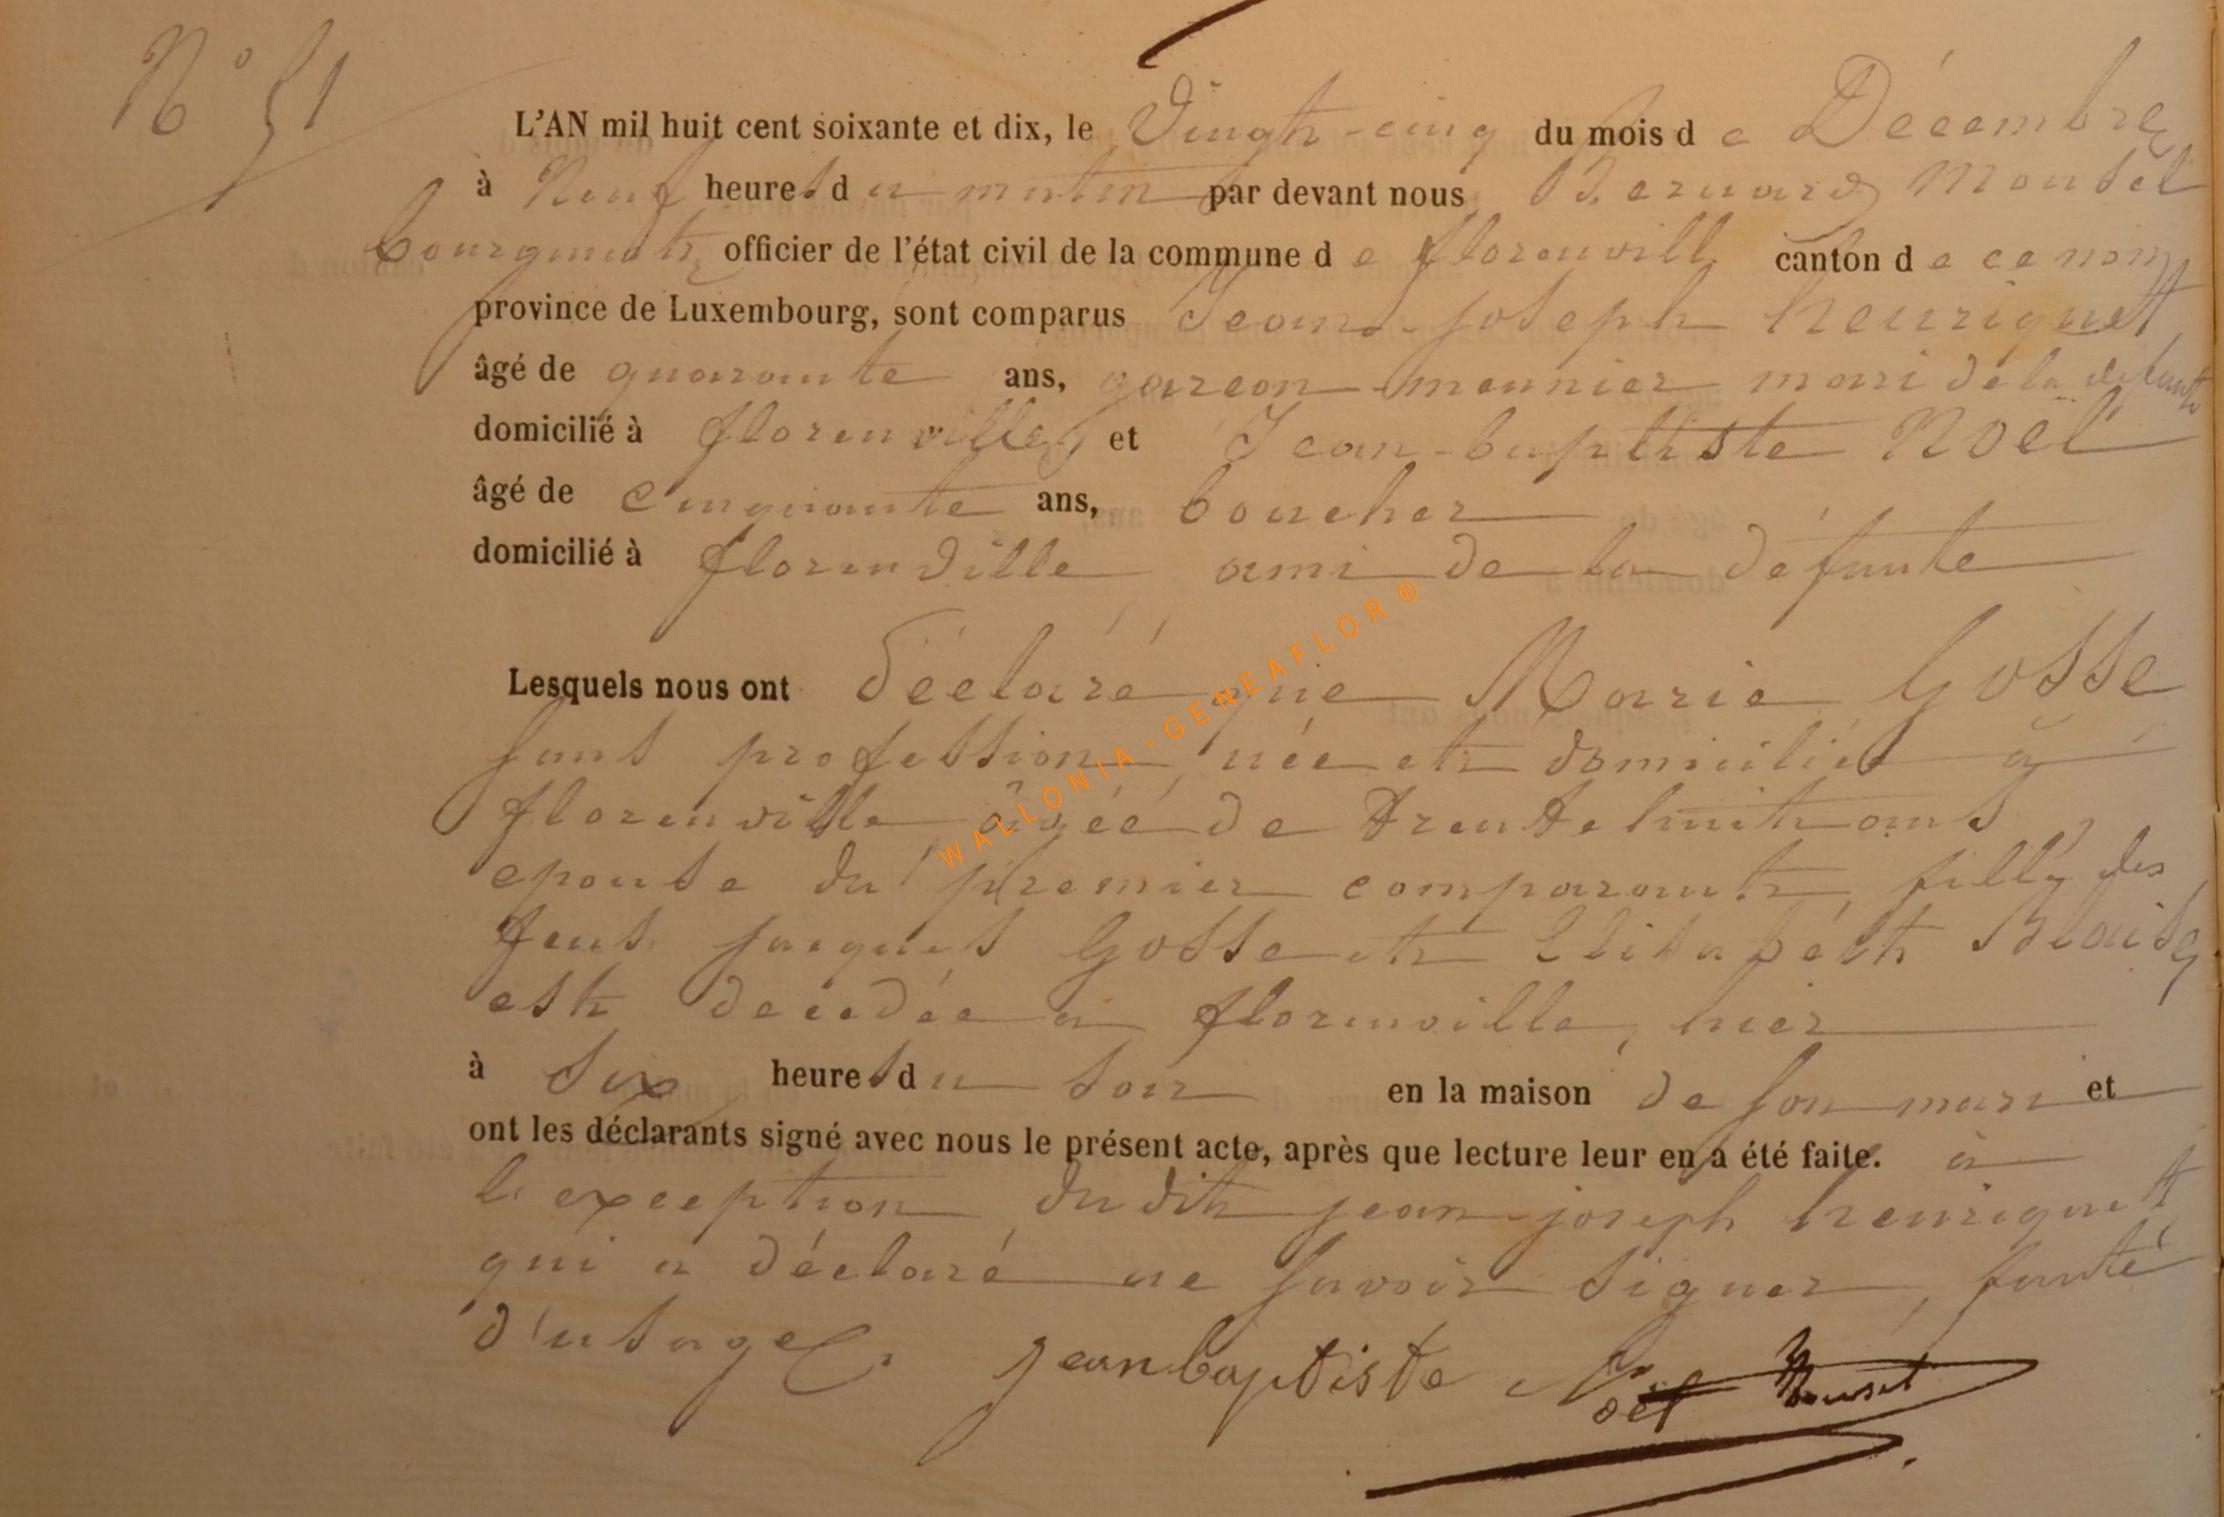 N° 51
L'AN mil huit cent soixante et dix, le Vingt-cinq du mois de Décembre
à Neuf heures du matin par devant nous Bernard Mousel
bourgmestre officier de l'état civil de la commune de florenville canton de ce nom
province de Luxembourg, sont comparus Jean-joseph henriquet
âgé de quarante ans, garçon meunier mari de la défunte
domicilié à florenville et Jean-baptiste Noël
âgé de Cinquante ans, boucher
domicilié à florenville ami de la défunte
Lesquels nous ont déclaré que Marie Gosse
sans profession, née et domiciliée à
florenville, âgée de trente huit ans
epouse du premier comparant, fille des
feus jacques Gosse et Elisabeth Blaise
est decedée à florenville, hier
à Six heures du soir en la maison de son mari et
ont les déclarants signé avec nous le présent acte, après que lecture leur en a été faite. à
l'exception du dit jean-joseph henriquet
qui a déclaré ne savoir signer, faute
d'usage.
jean baptiste Noël Mousel
WALLONIA-GENEAFLOR ®